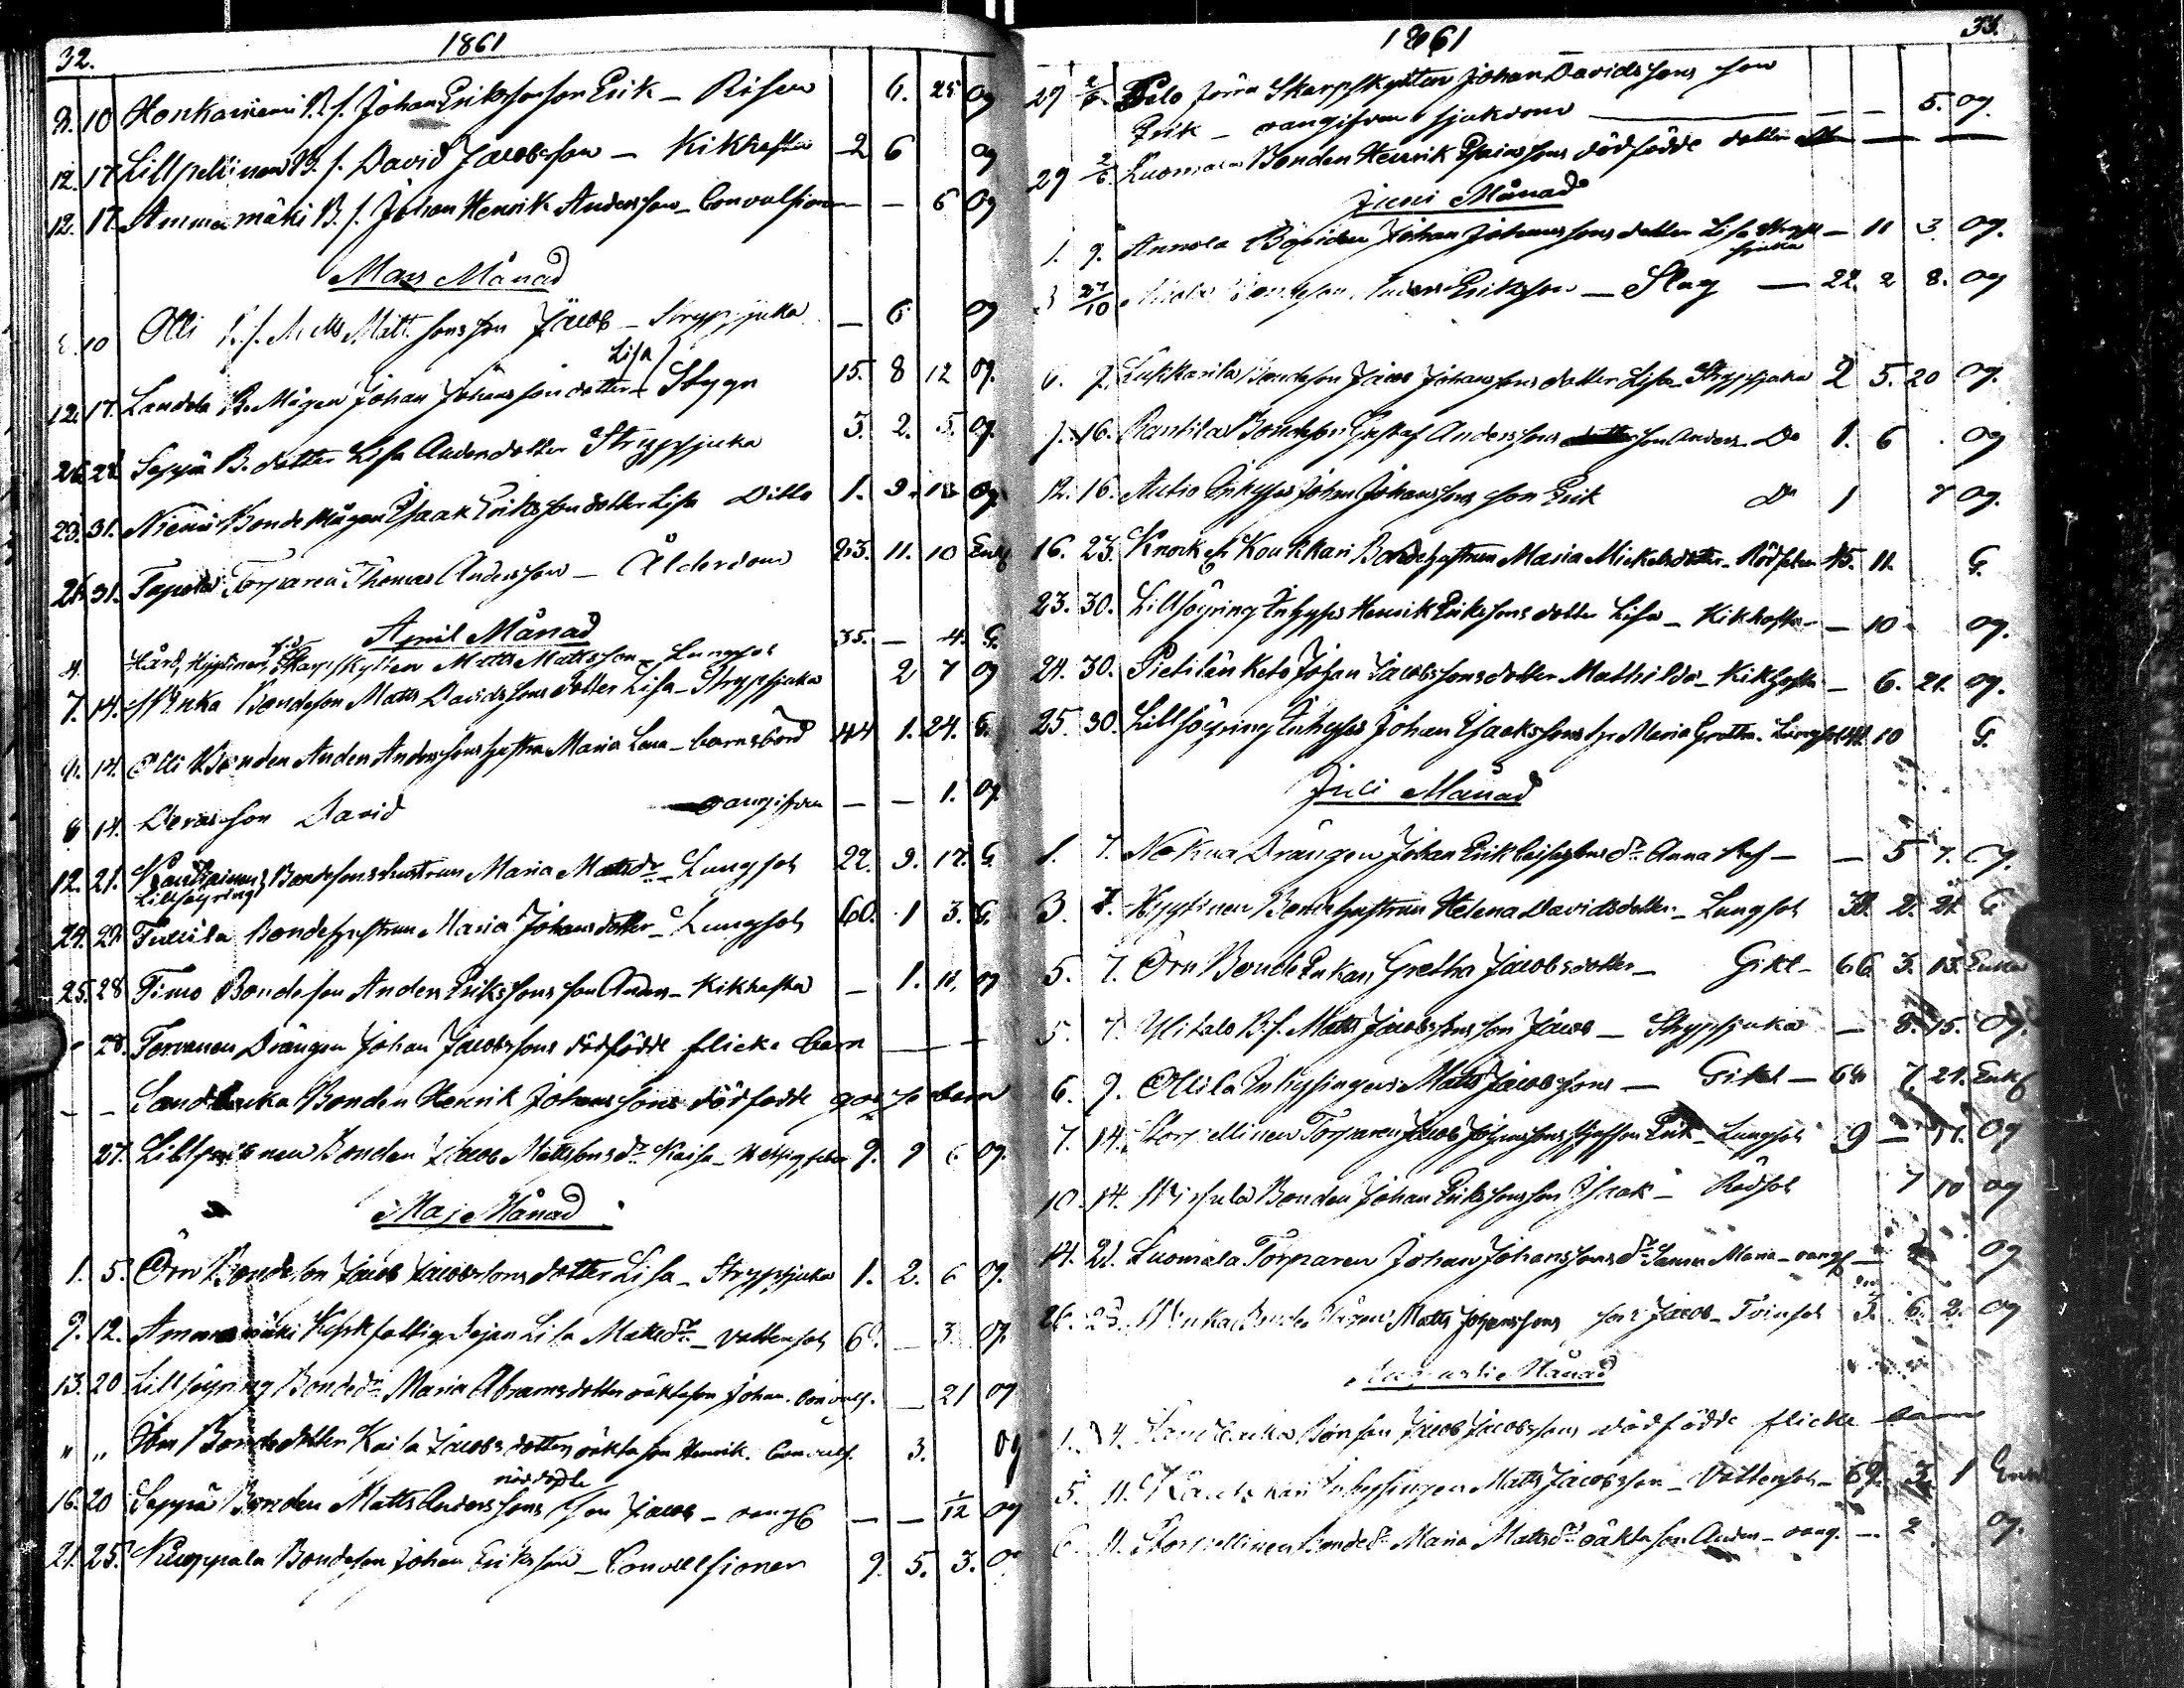 32.
1861
9. 10 Honkaniemi B. s. Johan Eriksson son Erik _ Risen 6. 25 og
12. 17 Lillpellinen B. s. David Jacobsson _ Kikhosta 2 6 og
12. 17. Ammesmäki B. s. Johan Henrik Andersson _ Convulsioner — — 6 og
Mars Månad
10 Olli B. s. Matts Mattssons son Jacob _ Strypsjuka — 6 og
Lisa
12. 17. Landela B. Mågen Johan Johanssons dotter Stygn 15. 8 12 og.
26. 28 Seppä B. dotter Lisa Andersdotter Strypsjuka 3. 2. 5. og.
23. 31. Niemi Bonde Mågen Isaak Erikssons dotter Lisa Ditto 1. 9. 18 og.
26. 31. Tapola Torparen Thomas Andersson _ Ålderdom 83. 11. 10 Enkl
April Månad
4. Hård, Hyytinen, Skarpskytten Matts Mattsson _ Lungsot 35. — 4. G.
7. 14. Bondeson Matts Davidssons dotter Lisa _ Strypsjuka 2 7 og
9. 14. Olli Bonden Anders Anderssons hustru Maria Lena _ barnsbörd 44 1. 24. G.
8 14. Deras son David oangifven — — 1. og
12. 21. Bondesons hustrun Maria Mattsdr _ Lungsot 22. 9. 17. G.
Lillsöyring
24. 28 Tuulila Bondehustrun Maria Johansdotter _ Lungsot 60. 1 3. G.
25. 28 Timo Bondeson Anders Erikssons son Anders _ Kikhosta — 1. 11. og
28. Torvanen Drängen Johan Jacobssons dödfödde flicke barn — — —
_ _ Sandbacka Bonden Henrik Johanssons dödfödde gosse barn
27. Lillpellinen Bonden Jacob Mattssons dr Kaisa _ Hetsig feber 9. 9 6 og.
Maj Månad
1. 5. Örn Bondeson Jacob Jacobssons dotter Lisa _ Strypsjuka 1. 2. 6 og.
9. 12. Ammesmäki Kyrkfattig Pigan Lisa Mattsdr _ Vattensot 6 — 3. og.
13. 20 Lillsöyring Bondedr Maria Abramsdotter oäkta son Johan. Convuls. — 21 og
" " Örn Bondedotter Kaisa Jacobsdotters oäkta son Henrik. Convuls. 3. og
nöddöpte
16. 20 Seppä Bonden Matts Anderssons son Jacob _ oangf — — 1/12 og
21. 25. Knuppala Bondeson Johan Eriksson _ Convulsioner 9. 5. 3. og
1861
33.
29 2/6. Pelo förra Skarpskytten Johan Davidssons son
Erik _ oangifven sjukdom — — — 5. og.
29 2/6. Luomala Bonden Henrik Esaiassons dödfödde dotter — — —
Juni Månad
1. 9. Annola Bonden Johan Johanssons dotter Lisa Stryp — 11 3. og.
sjuka
3 27/10 Bondeson Anders Eriksson _ Slag — 22. 2 8. og
6. 9. Lukkarila Bondeson Jacob Johanssons dotter Lisa _ Strypsjuka 2 5. 20 og.
7. 16. Rantila Bondeson Gustaf Anderssons son Anders _ Do 1. 6 og
12. 16. Autio Inhyses Johan Johanssons son Erik Do 1 8 og.
16. 23. Knock Koukkari Bondehustrun Maria Mickelsdotter _ Rödfeber 45. 11. G.
23. 30. Lillsöyring Inhyses Henrik Erikssons dotter Lisa _ Kikhosta — 10 og.
24. 30. Pietilänketo Johan Jacobssons dotter Mathilda _ Kikhosta — 6. 21. og.
25. 30. Lillsöyring Inhyses Johan Isakssons hu Maria Gretha. Lungsot 44. 10 G.
Juli Månad
1. 7. Nokua Drängen Johan Erik dr Anna — — 5 7. og.
3. 7. Hyytinen Bondehustrun Helena Davidsdotter _ Lungsot 38. 2. 21. G.
5. 7. Örn Bonde Enkan Gretha Jacobsdotter _ Gikt _ 66 3. 13. Enka
5. 7. Ylitalo B. s. Matts Jacobssons son Jacob _ Strypsjuka — 8. 15. og.
6. 9. Ollila Inhysingen Matts Jacobsson _ Gikt — 64 7. 21. Enkl
7. 14. Storpellinen Torparen Jacob Johanssons son Erik _ Lungsot 9 — 11. og
10. 14. Bonden Johan Erikssons son Isaak _ Rödsot 7 10 og
14. 21. Luomala Torparen Johan Johanssons dr Sanna Maria _ oangf — og
26. 28. Bonde Mågen Matts Johanssons son Jacob _ Tvinsot 3. 6. 2. og
Augusti Månad
1. 4. Sandbacka Bonson Jacob Jacobssons dödfödde flicke barn
5. 11. Inhysingen Matts Jacobsson _ Vattensot _ 69. 3. 1 Enkl
6. 11. Storpellinen Bondedr Maria Mattsdrs oäkta son Anders _ oang. — 2 og.